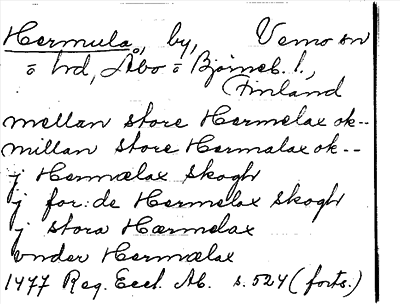 Hermula, by, Vemo sn
o hd, Åbo o Björneb. l.,
Finland
mellan store Hermelax ok--
millan store Hermalax ok--
j Hermælax skogh
j for:de Hermelox skogh
j stora Hærmelax
vnder Hermælax
1477 Reg. Eccl. Ab. s. 524 (forts.)